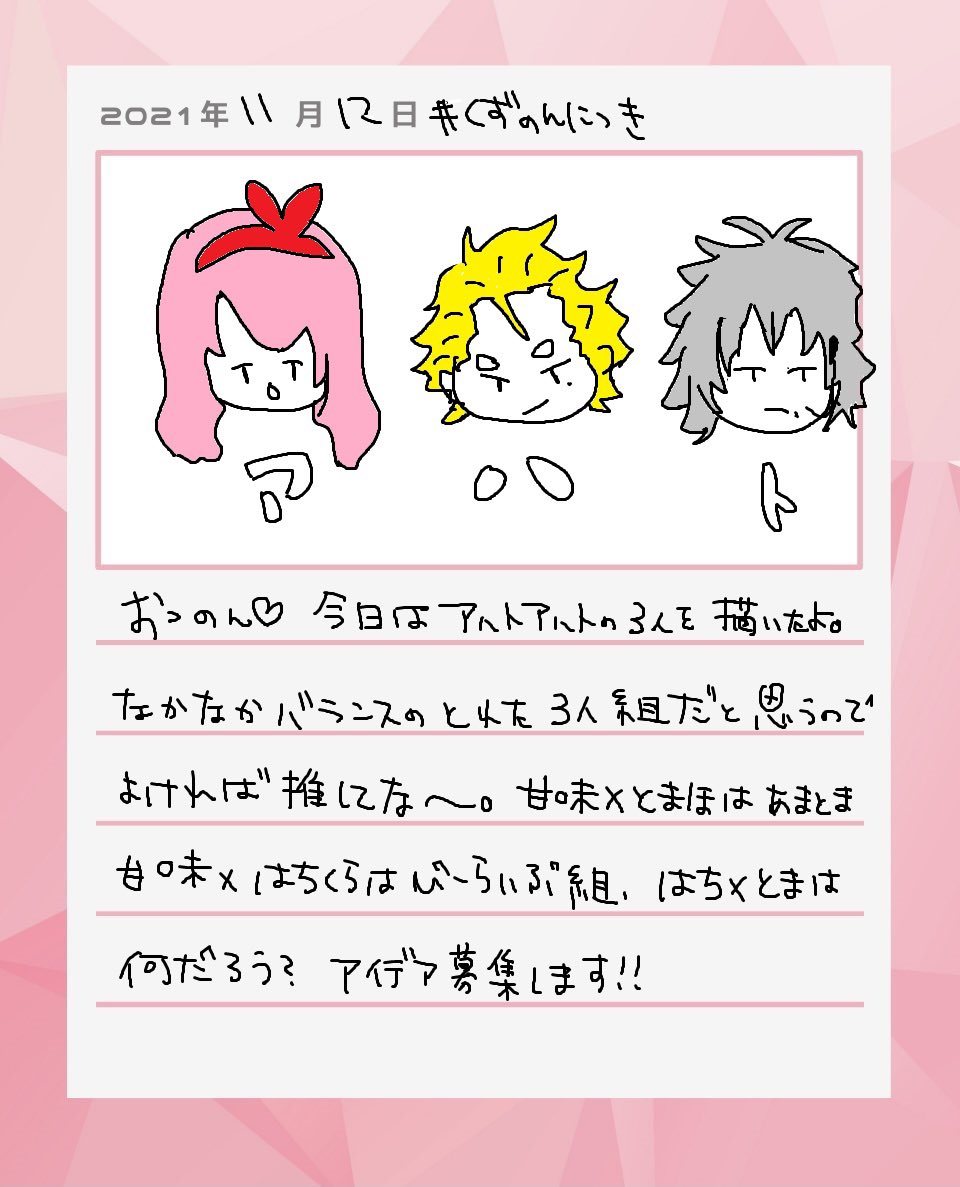 2021年11月12日 #くずのんにっき
ア ハ ト
おつのん♡ 今日はアハトアハトの3人を描いたよ。
なかなかバランスのとれた3人組だと思うので
よければ推してな〜。甘味×とまほはあまとま
甘味×はちくらはびーらいぶ組、はち×とまは
何だろう? アイデア募集します!!